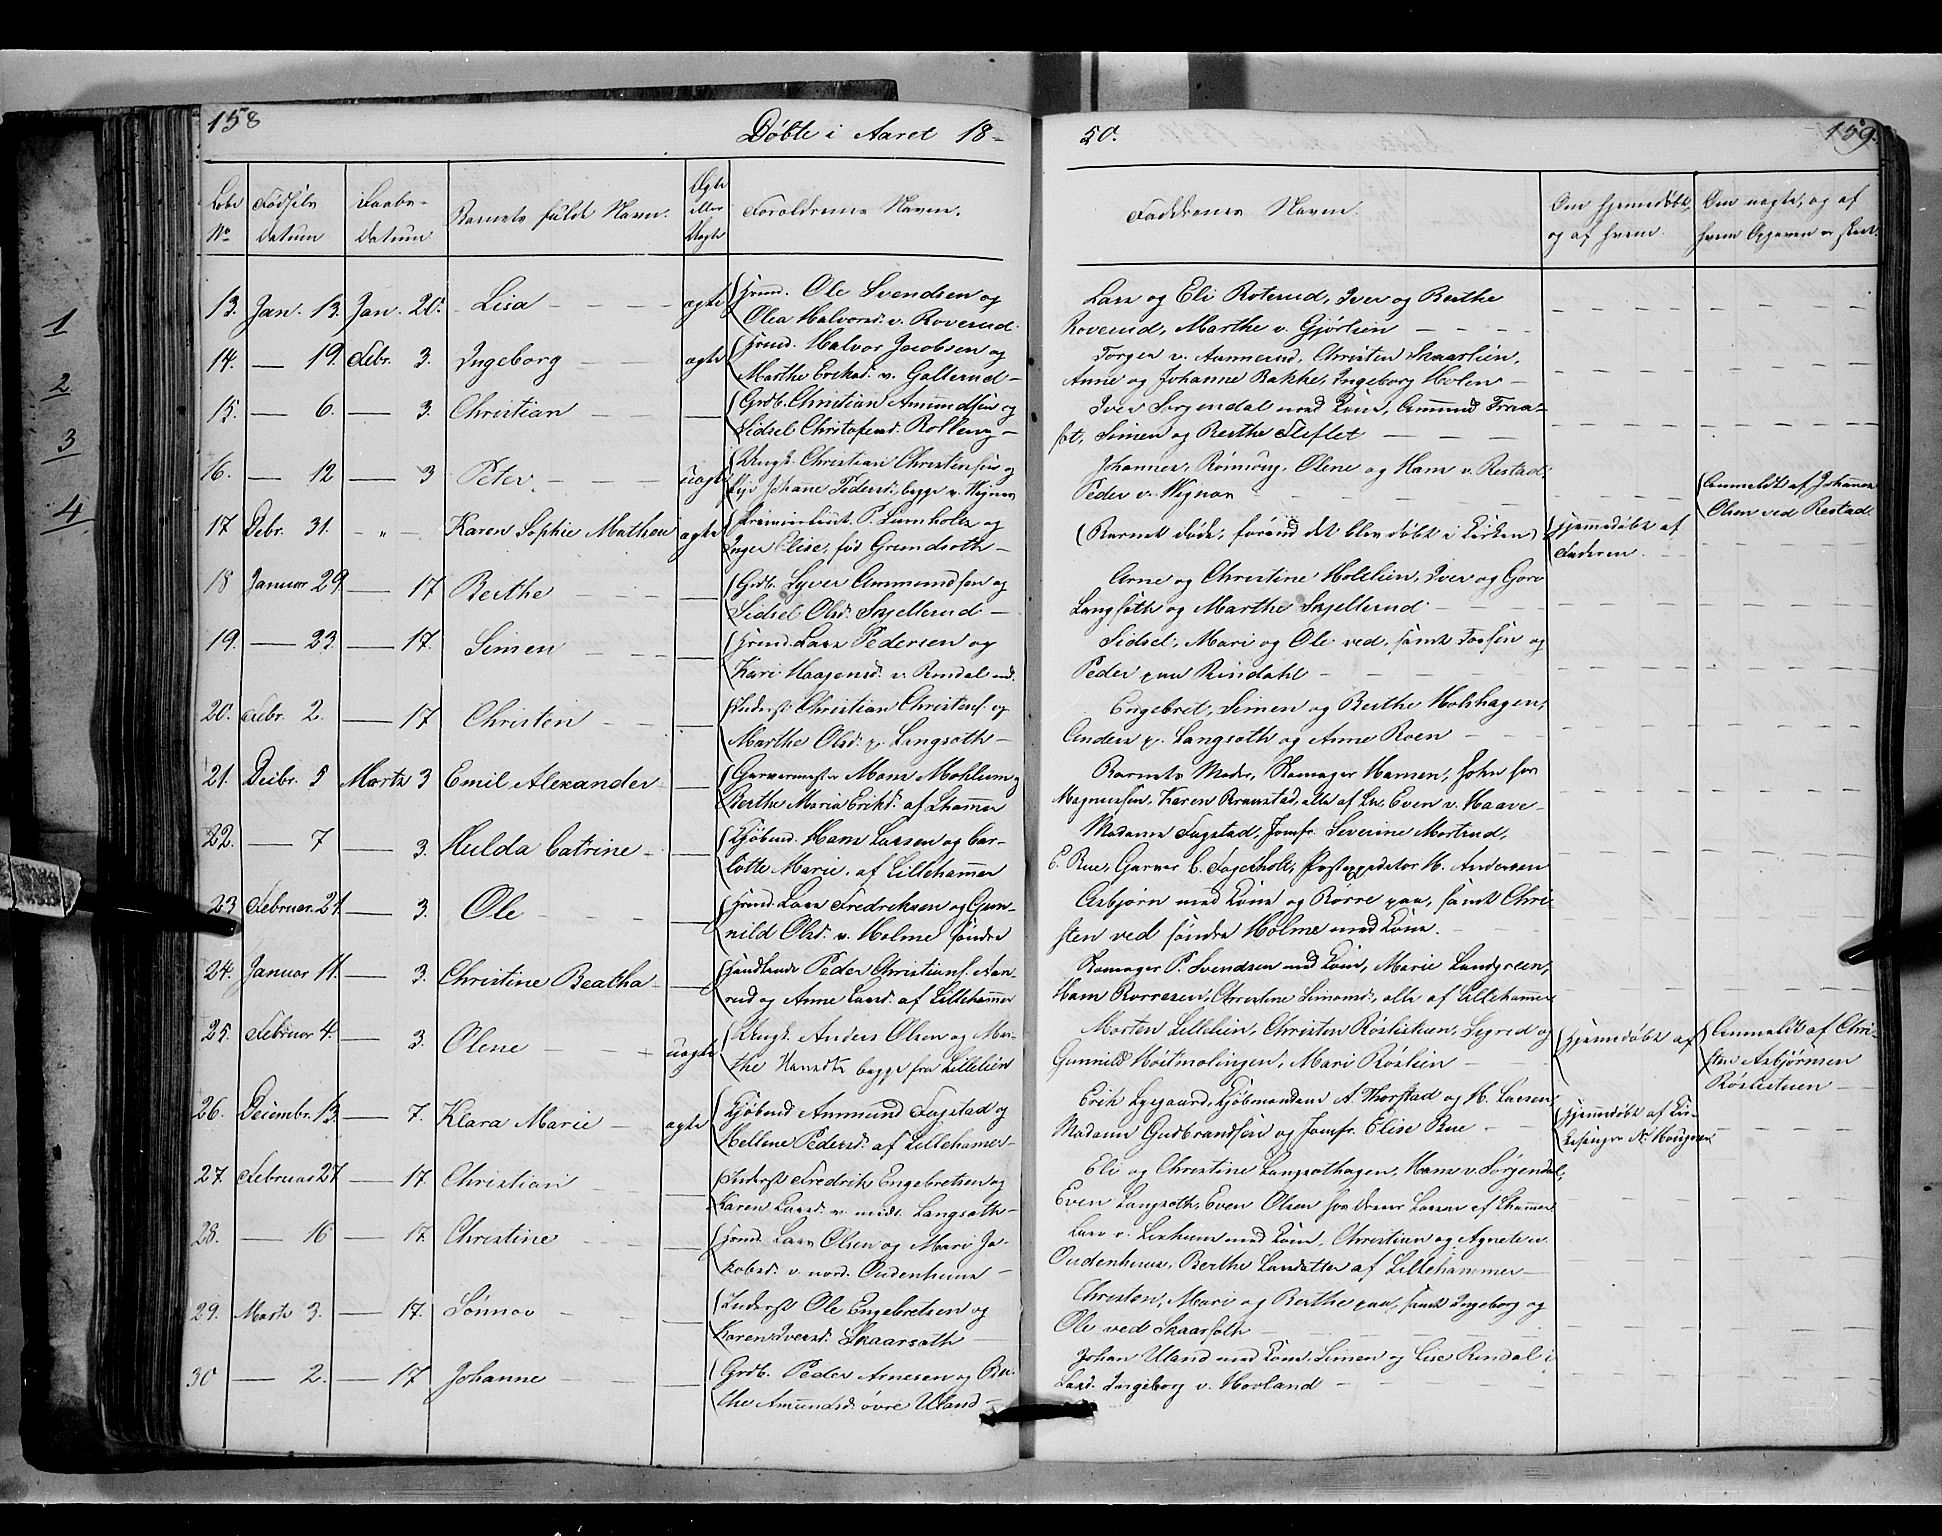 158
Døbte i Aaret 18-
50.
159.
Løbe No
Fødsels Datum
Daabs-Datum
Barnets fulde Navn.
Ægte eller Uægte
Forældrenes Navne.
Faddrenes Navne.
Om hjemmedøbt, og af hvem.
13. Jan. 13. Jan. 20. Lisa — ægte Huusm. Ole Svendsen og
Olea Halvorsd. v. Roverud.
Lars og Eli Roterud, Iver og Berthe
Roverud, Marthe v. Gjørlien
14. — 19. Febr. 3. Ingeborg — ægte Huusm. Halvor Jacobsen og
Marthe Eriksd. v. Gallerud
Torger v. Aunnerud, Christen Skaarlien,
Anne og Johanne Bakke, Ingeborg Holen
15. — 6. — 3. Christian — Grdb. Christian Amundsen og
Sidsel Christofersd. Rolleng
Iver Sørgendal med Kone, Ammund
Simen og Berthe Fliflet
16. — 12 — 3 Peter. — uægte Ungk. Christian Christensen og
Pige Johanne Pedersd. begge v. Wignæs
Johannes Olene og Hans v. Restad,
Peder v. Wignæs
Anmeldt af Johannes
Olsen ved Restad.
17 Debr. 31. - " - Karen Sophie Mathea ægte Premierlieut. P. Lumholtz og
Inger Elise, fød Grundseth
(Barnet døde, førend det blev døbt i Kirken)
Hjemmedøbt af
Faderen.
18 Januar 29. — 17 Berthe — Grdb. Syver Ammundsen og
Sidsel Olsd. Skjellerud
Arne og Christine Holelien, Iver og Goro
Langsæth og Marthe Skjellerud.
19. — 23. — 17. Simen — Huusm. Lars Pedersen og
Kari Haagensd. v. Rindal
Sidsel, Mari og Ole ved, samt og
Peder paa Rindahl
20. Febr. 2. — 17 Christen — Inderst Christian Christens. og
Marthe Olsd. p. Langsæth
Engebret, Simen og Berthe Holshagen,
Anders p. Langsæth og Anne Roen
21. Decbr. 5 Marts 3 Emil Alexander — Garvermester Hans Mohlum og
Berthe Maria Eriksd. af Lhammer
Barnets Moder, Skomager Hansen, John
Magnussen, Karen alle af Lh. Even v. Haave
22. — 7 — 3. Hulda Catrine — Kjøbmd. Hans Larsen og Car-
lotte Marie. af Lillehammer
Madame Fagstad, Jomfr. Severine Mortrud,
E. Rue, Garver C. Fagerholt, Postexpeditør H. Andersen
23 Februar 21. — 3. Ole — Huusm. Lars Fredriksen og Gun-
nild Olsd. v. Holme søndre
Asbjørn med Kone og Børre paa, samt Chri-
sten ved søndre Holme med Kone.
24. Januar 11. — 3. Christine Beatha — Handlende Peder Christians. Aan-
rud og Anne Larsd. af Lillehammer
Skomager P. Svendsen med Kone, Marie Lundgreen,
Hans Borresen, Christine Simonsd., alle af Lillehammer
25. Februar 4. — 3. Olene — uægte Ungk. Anders Olsen og Mar-
the Hansdtr begge fra Lillelien
Morten Lillelien, Christen Røslistuen, Sigrid og
Gunnild Høistmælingen, Mari Røslien
Hjemmedøbt af
Anmeldt af Chri-
sten Asbjørnsen
Røslistuen
26. Decembr. 13. — 7. Klara Marie — ægte Kjøbmd. Ammund Fagstad og
Hellene Pedersd. af Lillehammer
Erik Lysgaard, Kjøbmændene A. Thorstad og H. Larsen,
Madame Gudbrandsen og Jomfr. Elise Rue
Hjemmedøbt af Kir-
kesanger
27. Februar 27. — 17. Christian — Inderst Fredrik Engebretsen og
Karen Larsd. v. midt. Langsæth
Eli og Christine Langsæthagen, Hans v. Sørgendal,
Even Langsæth, Even Olsen Larsen af Lhammer
28. — 16 — 17. Christine — Huusm. Lars Olsen og Mari Ja-
kobsd. v. nord. Oudenhuus
Lars v. Lixhuus med Kone, Christian og Agnete v.
Oudenhuus, Berthe Larsdatter af Lillehammer
29. Marts 3. — 17. Sønnov — Inderst Ole Engebretsen og
Karen Iversd. Skaarsæth
Christen, Mari og Berthe paa, samt Ingeborg og
Ole ved Skaarsæth
30 — 2. — 17 Johanne — Grdb. Peder Arnesen og Ber-
the Amundsd. øvre Uland
Johan Uland med Kone, Simen og Lise Rindal i
Ingeborg v. Hovland
1
2
3
4